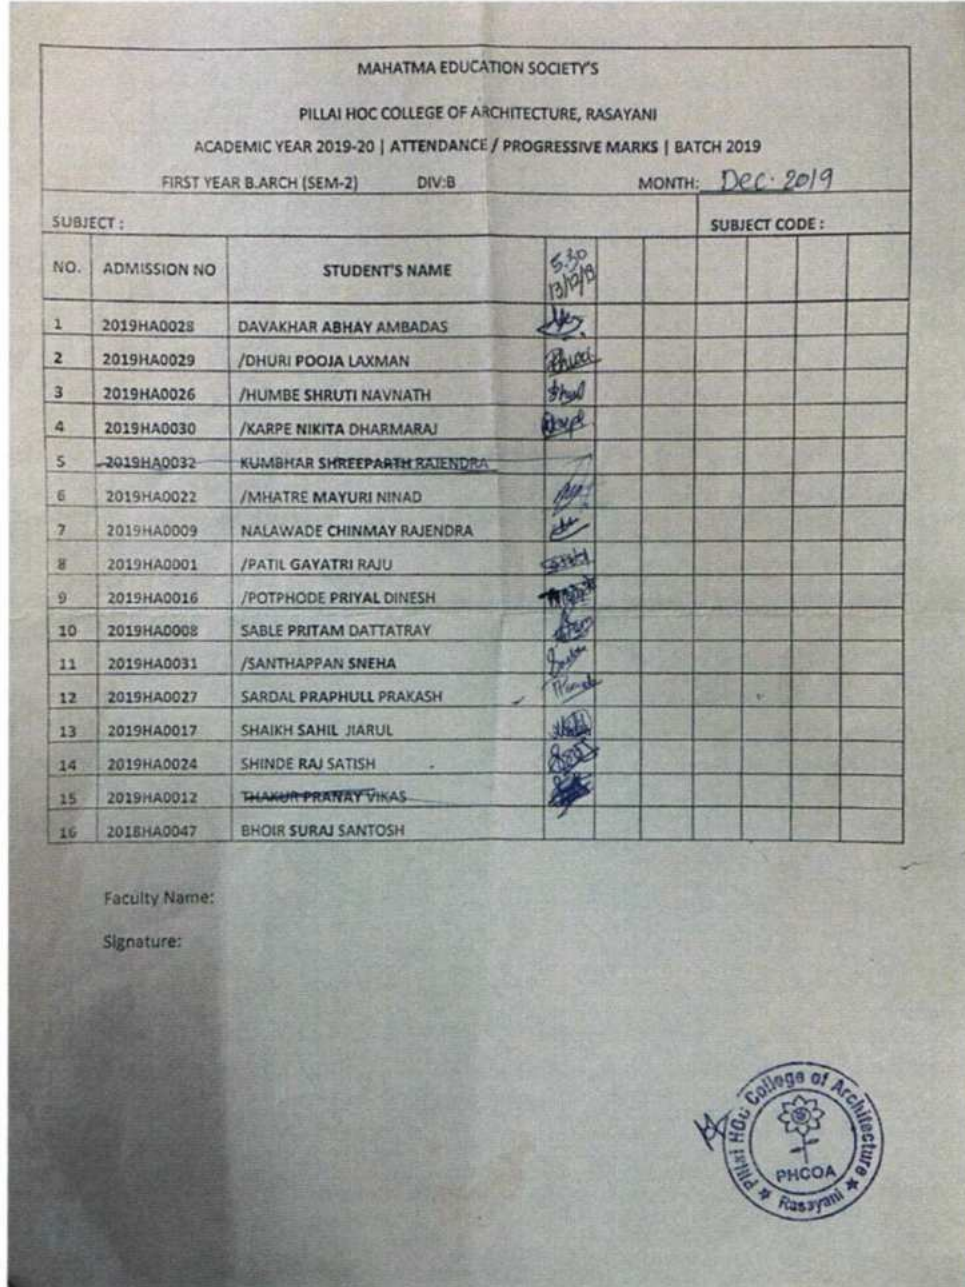 MAHATMA EDUCATION SOCIETY'S
PILLAI HOC COLLEGE OF ARCHITECTURE, RASAYANI
ACADEMIC YEAR 2019-20 | ATTENDANCE / PROGRESSIVE MARKS | BATCH 2019
FIRST YEAR B.ARCH (SEM-2) DIV:B MONTH: Dec. 2019
SUBJECT : SUBJECT CODE :
NO. ADMISSION NO STUDENT'S NAME 5.30
13/12/19
1 2019HA0028 DAVAKHAR ABHAY AMBADAS
2 2019HA0029 /DHURI POOJA LAXMAN
3 2019HA0026 /HUMBE SHRUTI NAVNATH
4 2019HA0030 /KARPE NIKITA DHARMARAJ
5 2019HA0032 KUMBHAR SHREEPARTH RAJENDRA
6 2019HA0022 /MHATRE MAYURI NINAD
7 2019HA0009 NALAWADE CHINMAY RAJENDRA
8 2019HA0001 /PATIL GAYATRI RAJU
9 2019HA0016 /POTPHODE PRIYAL DINESH
10 2019HA0008 SABLE PRITAM DATTATRAY
11 2019HA0031 /SANTHAPPAN SNEHA
12 2019HA0027 SARDAL PRAPHULL PRAKASH
13 2019HA0017 SHAIKH SAHIL JIARUL
14 2019HA0024 SHINDE RAJ SATISH
15 2019HA0012 THAKUR PRANAY VIKAS
16 2018HA0047 BHOIR SURAJ SANTOSH
Faculty Name:
Signature:
Pillai HOC College of Architecture
PHCOA
Rasayani